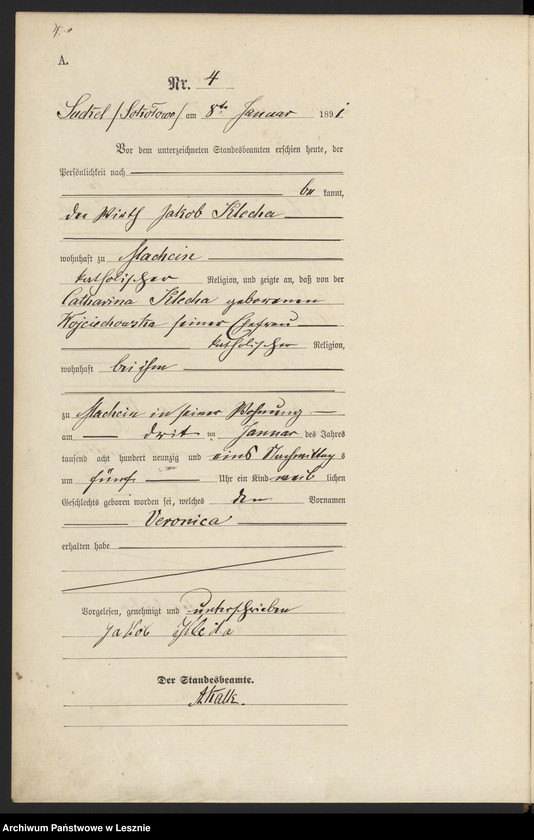 A.
Nr. 4
(Sokołowo) am 8ten Januar 1891
Vor dem unterzeichneten Standesbeamten erschien heute, der
Persönlichkeit nach
be kannt,
der Wirth Jakob Klecha
wohnhaft zu Machcin
katholischer Religion, und zeigte an, daß von der
Catharina Klecha geborenen
Wojciechowska seiner Ehefrau
katholischer Religion,
wohnhaft bei ihm
zu Machcin in seiner Wohnung
am drit en Januar des Jahres
tausend acht hundert neunzig und eins Nachmittag s
um fünf Uhr ein Kind weib lichen
Geschlechts geboren worden sei, welches den Vornamen
Veronica
erhalten habe
Vorgelesen, genehmigt und unterschrieben
Jakób
Der Standesbeamte.
Archiwum Państwowe w Lesznie